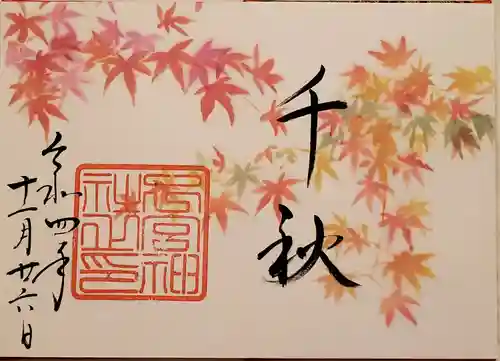 千秋
宮神
社之印
令和四年
十一月廿六日